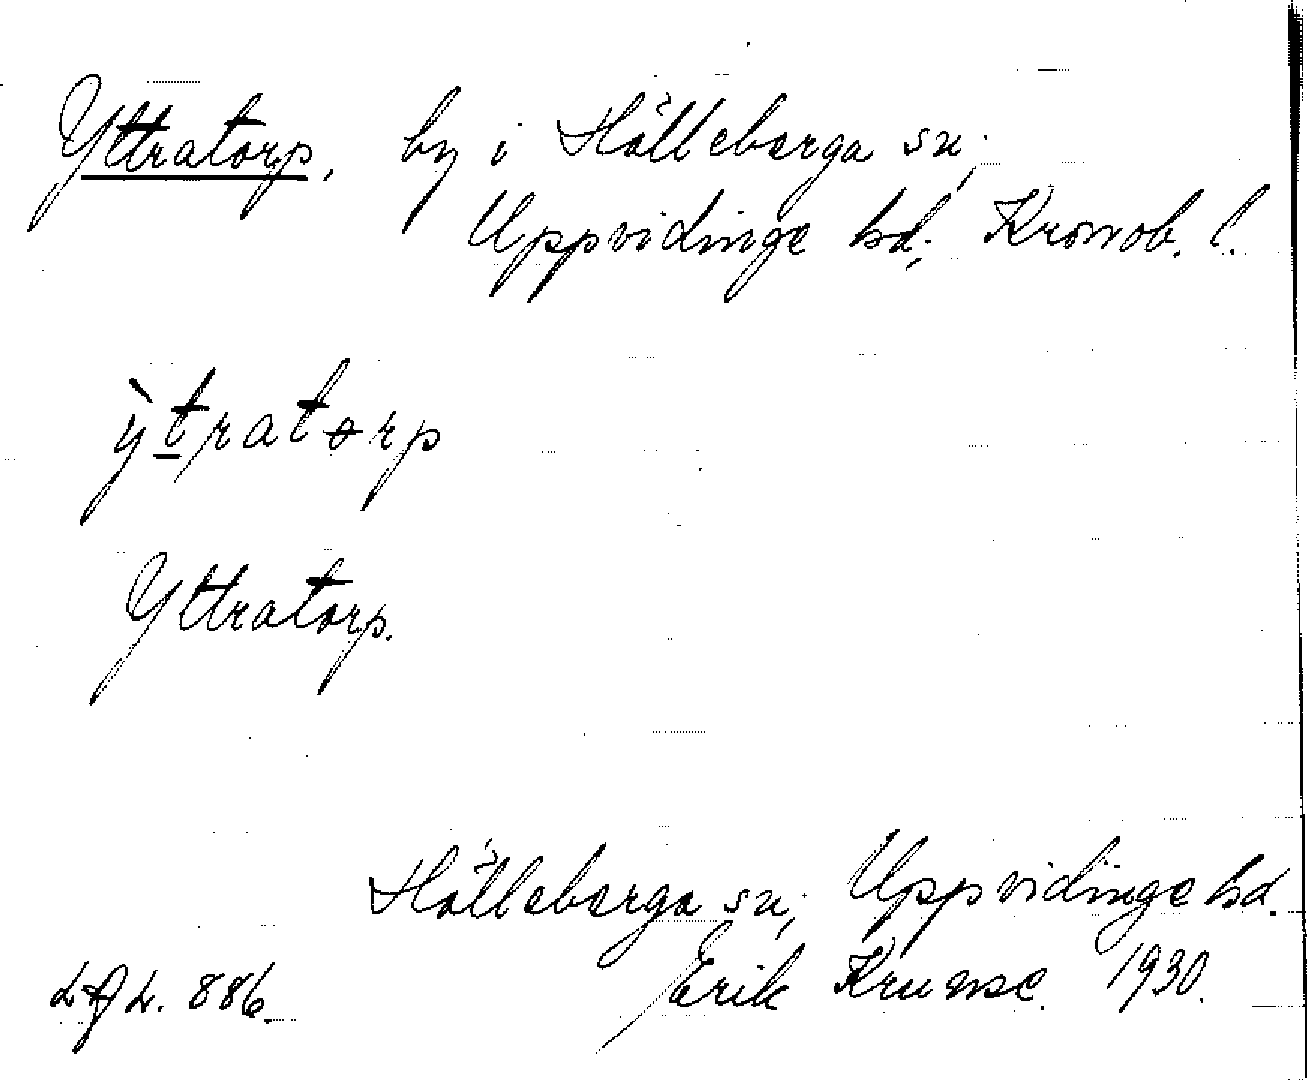 Yttratorp, by i Hälleberga sn;
Uppvidinge hd; Kronob. l.
ỳtratɵrp
Yttratorp.
Hälleberga sn; Uppvidinge hd.
Erik 1930.
886.